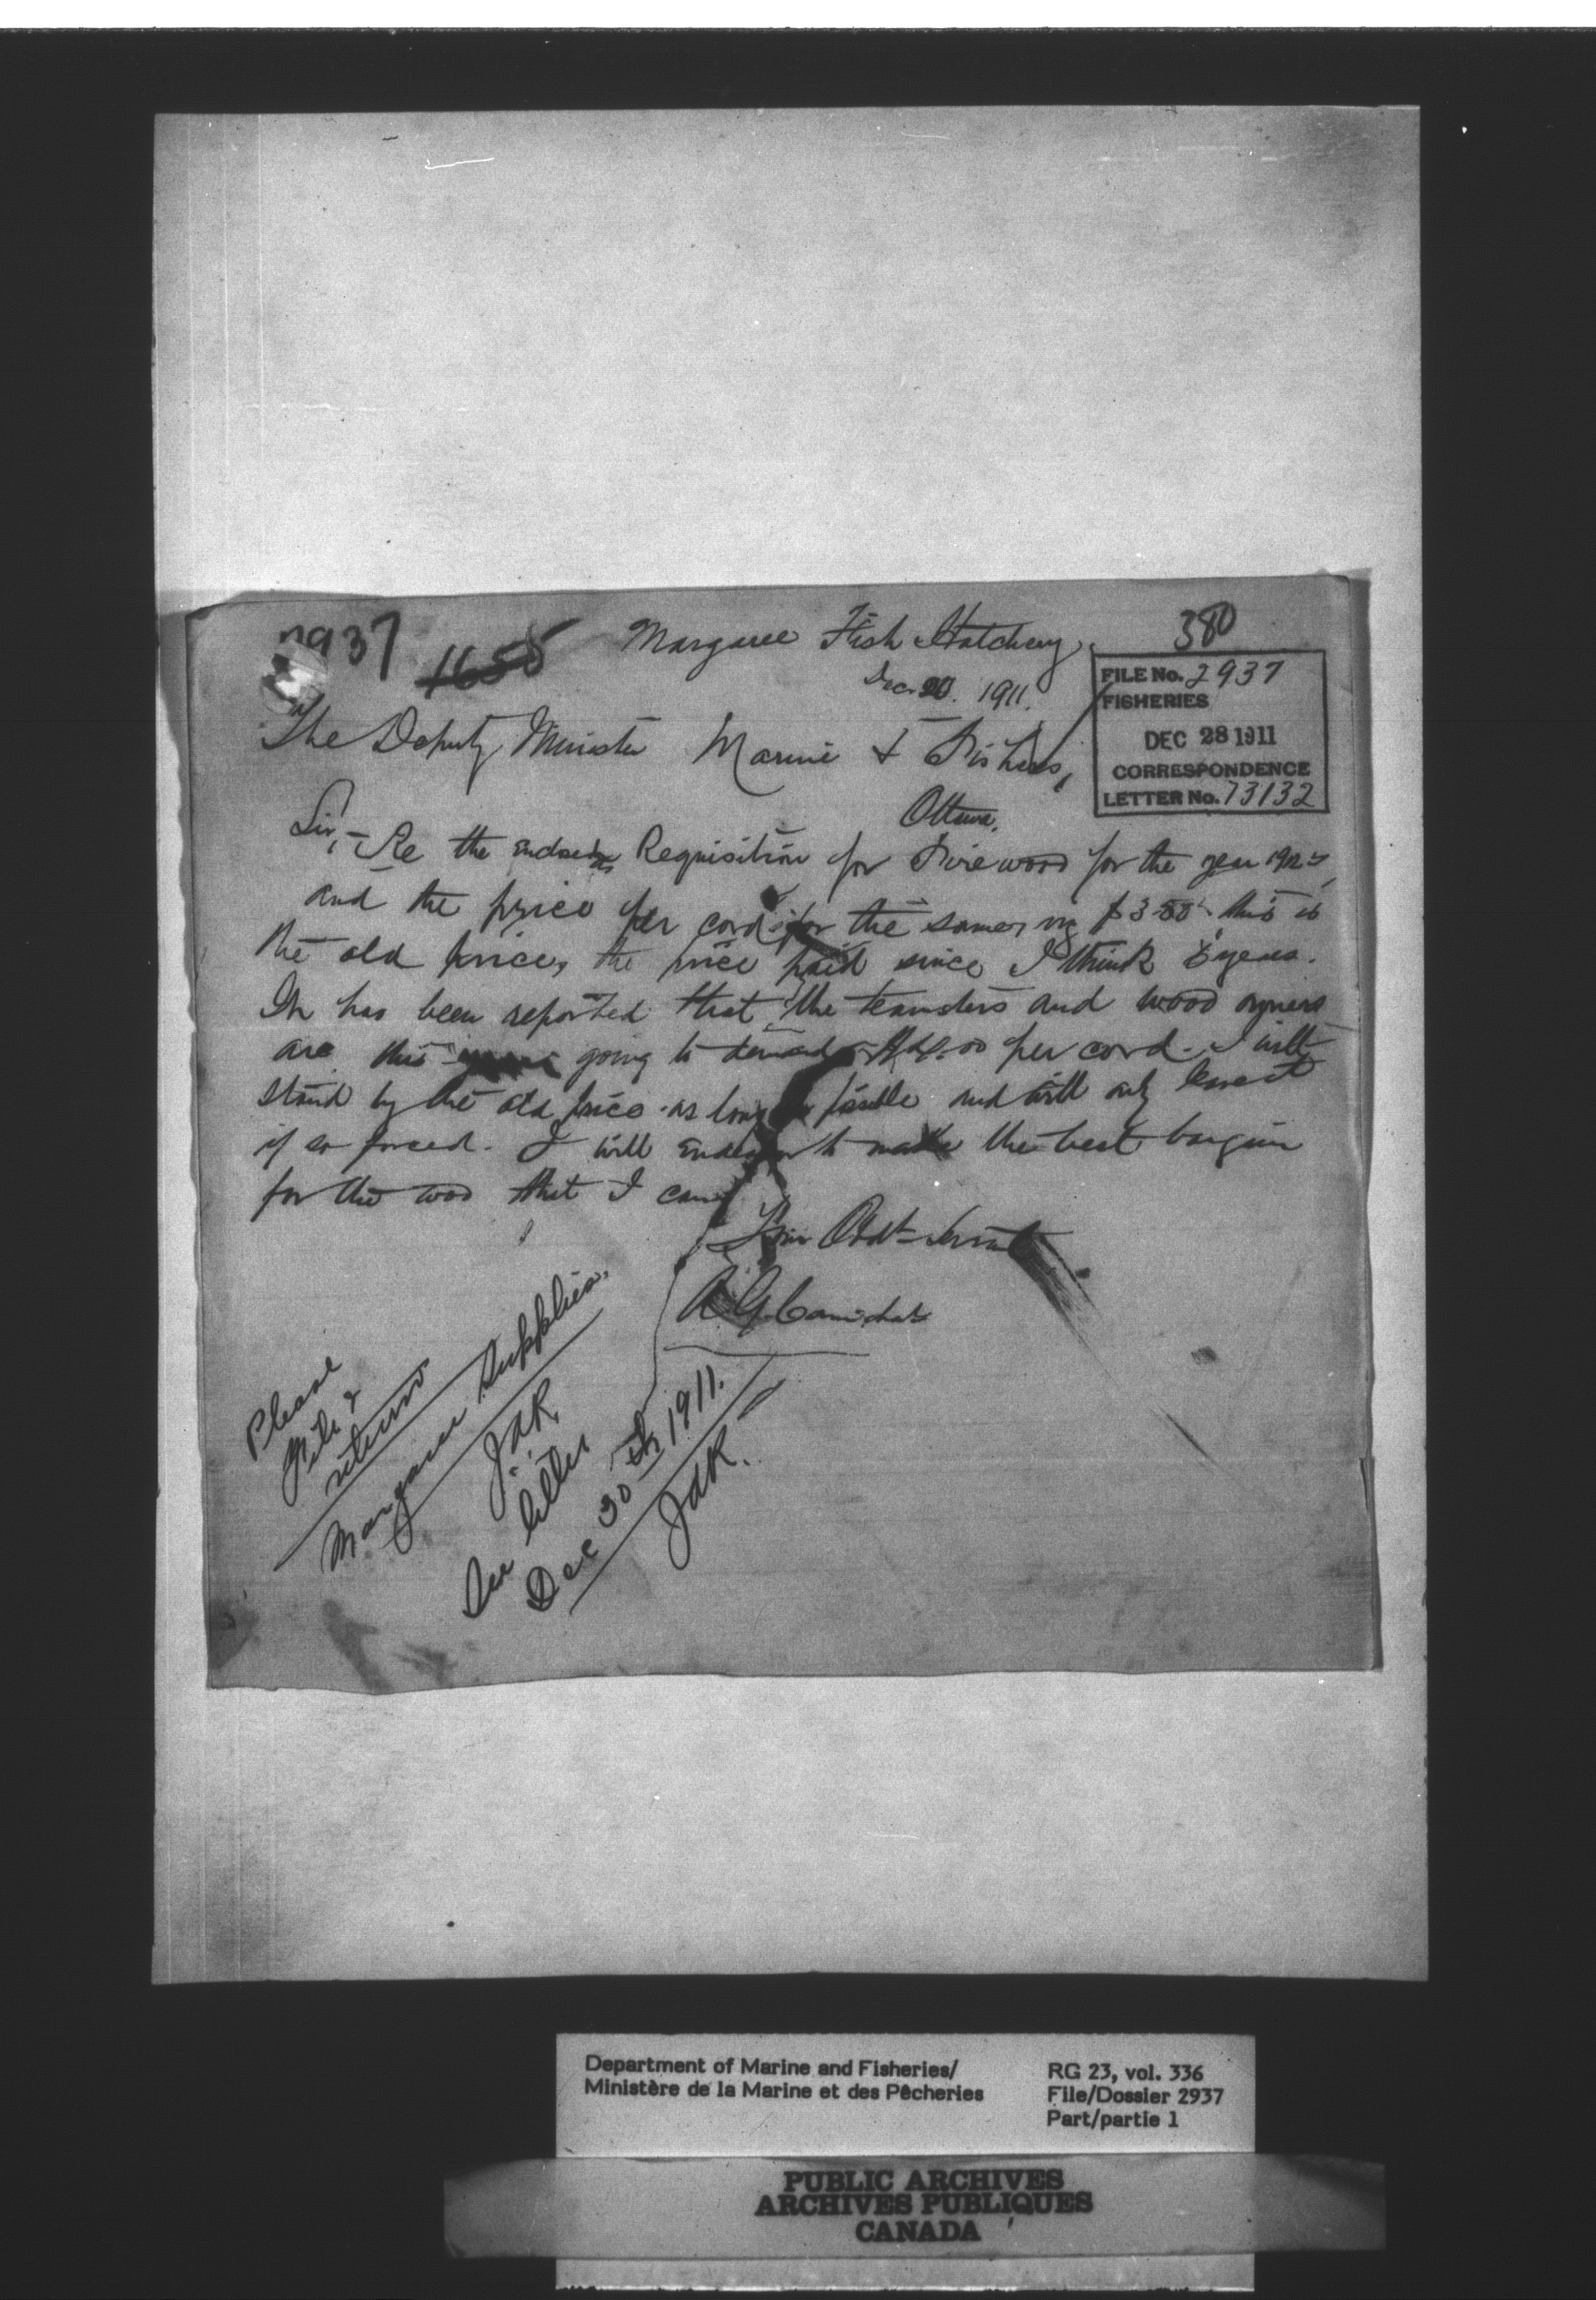 2937
1655
380
Margaree Fish Hatchery
Dec 20. 1911.
FILE No. 2937
FISHERIES
DEC 28 1911
CORRESPONDENCE
LETTER No. 73132
The Deputy Minister Marine &
Ottawa.
Sir, - Re the Requisition for Firewood for the year
and the price per cord for the same, this is
the old price, the price paid since I think years.
It has been reported that the teamsters and wood owners
are this going to demand per cord. I will
stand by the old price as long and will only
if so forced. I will endeavor to make the best bargain
for the wood that I can
Your Obdt Servant
A G
Please
file &
return
Margaree Supplies.
JAR.
See letter
Dec 30th 1911.
JAR.
Department of Marine and Fisheries/
Ministère de la Marine et des Pêcheries
RG 23, vol. 336
File/Dossier 2937
Part/partie 1
PUBLIC ARCHIVES
ARCHIVES PUBLIQUES
CANADA